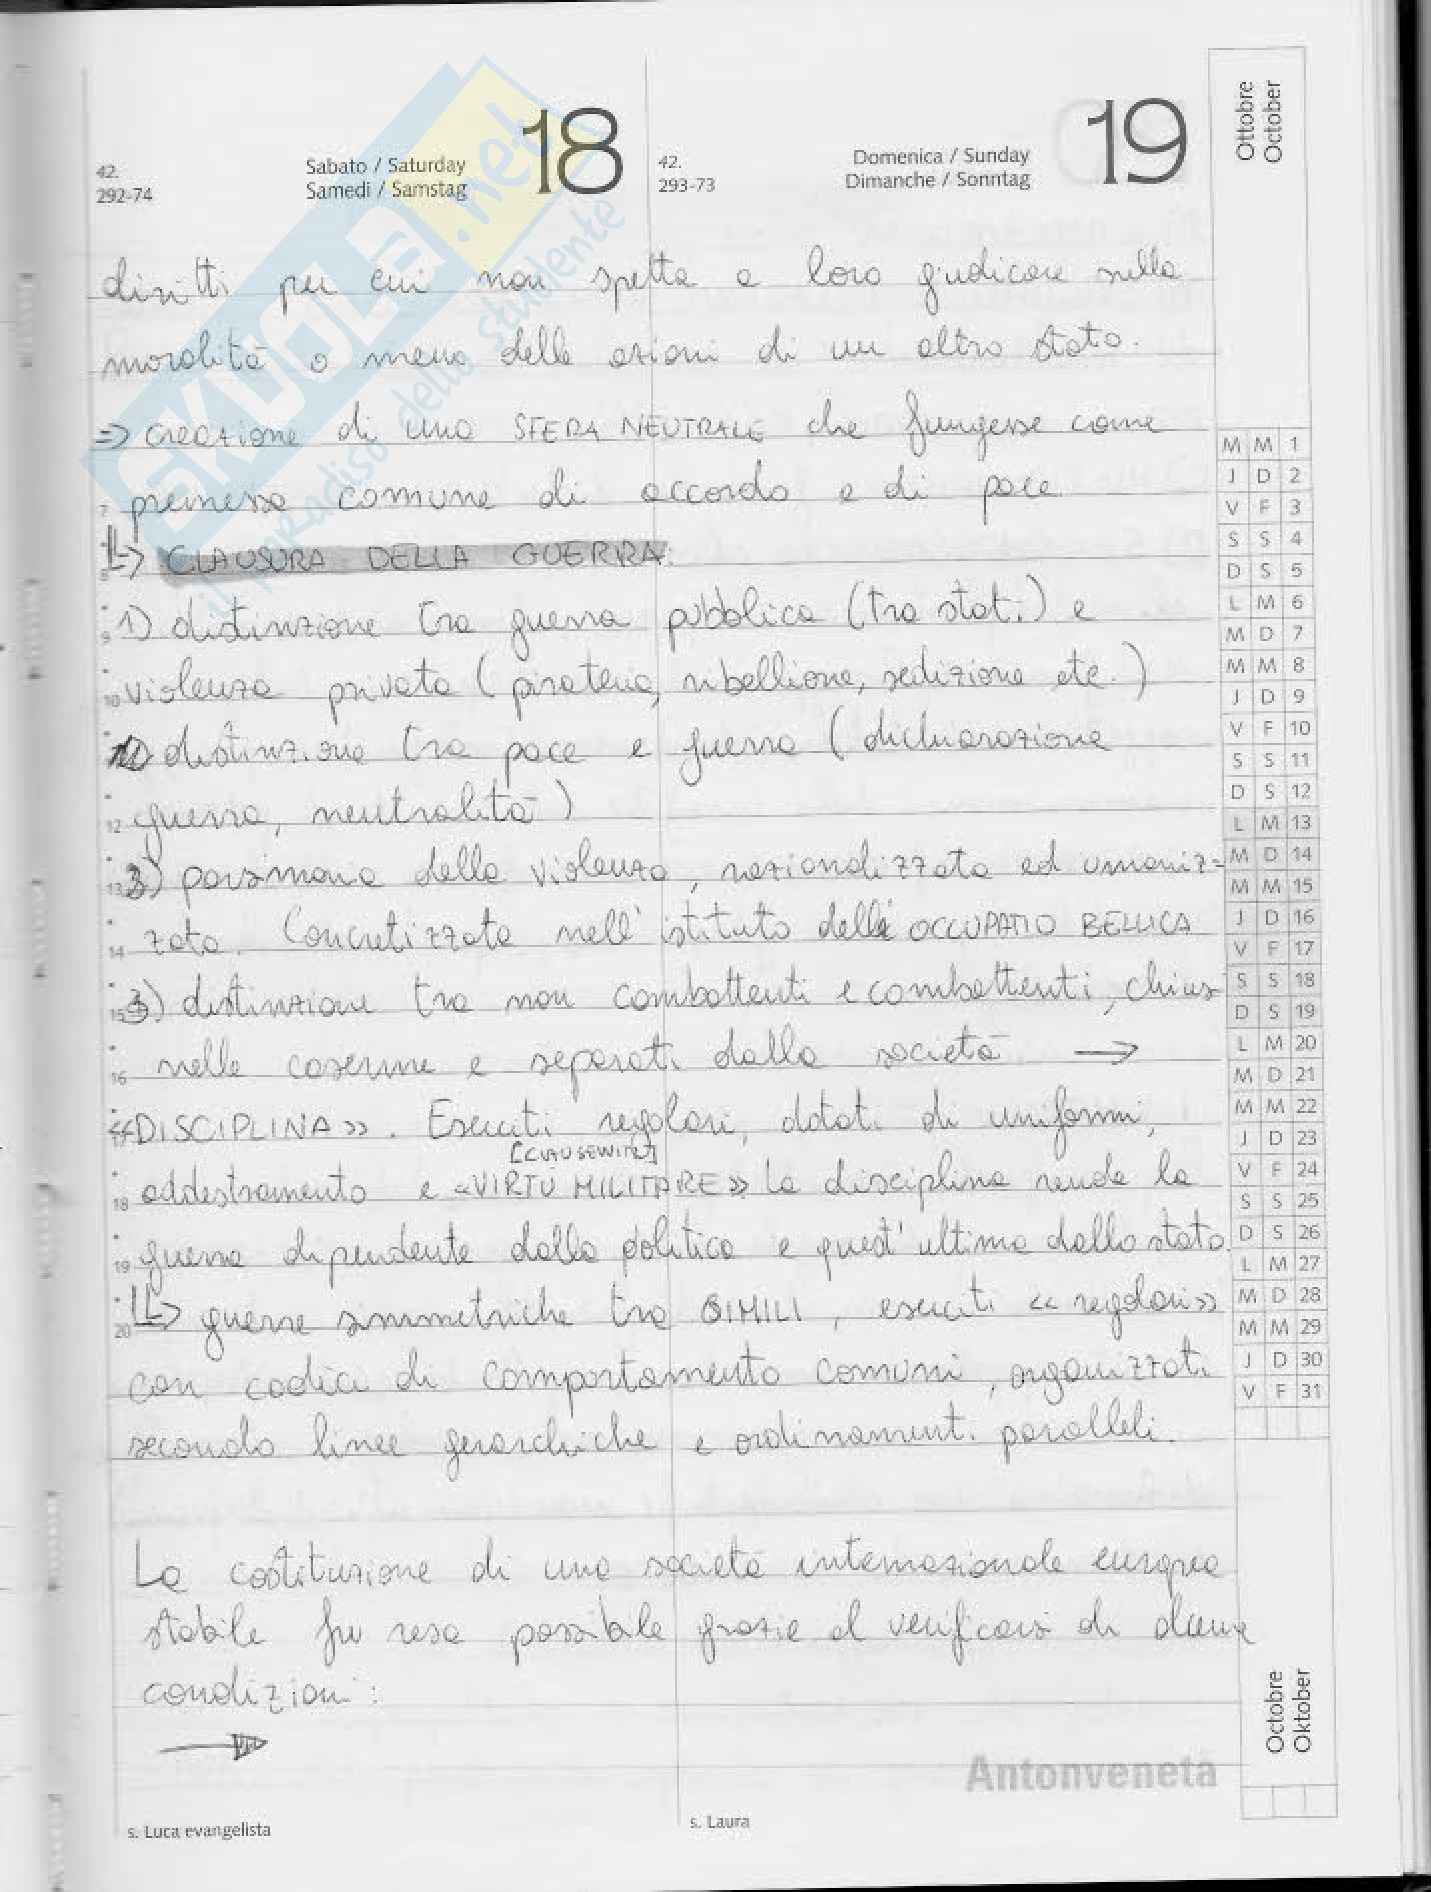 Ottobre
October
18
19
42.
292-74
Sabato / Saturday
Samedi / Samstag
42.
293-73
Domenica / Sunday
Dimanche / Sonntag
SKUOLA.net
il paradiso dello studente
diritti per cui non spetta a loro giudicare sulla
moralità o meno delle azioni di un altro stato.
=> creazione di una SFERA NEUTRALE che fungesse come
premessa comune di accordo e di pace
↳> CLAUSURA DELLA GUERRA:
1) distinzione tra guerra pubblica (tra stati) e
violenza privata (pirateria, ribellione, sedizione etc.)
2) distinzione tra pace e guerra (dichiarazione
guerra, neutralità)
3) parsimonia della violenza, razionalizzata ed umaniz-
zata. Concretizzata nell'istituto della OCCUPATIO BELLICA
3) distinzione tra non combattenti e combattenti, chiusi
nelle caserme e separati dalla società →
«DISCIPLINA». Eserciti regolari, dotati di uniformi,
[CLAUSEWITZ]
addestramento e «VIRTÙ MILITARE» la disciplina rende la
guerra dipendente dalla politica e quest'ultima dallo stato.
↳> guerre simmetriche tra SIMILI, eserciti «regolari»
con codici di comportamento comuni, organizzati
secondo linee gerarchiche e ordinamenti paralleli.
La costituzione di una società internazionale europea
stabile fu resa possibile grazie al verificarsi di alcune
condizioni:
→
7
8
9
10
12
13
14
15
16
18
19
20
M M 1
J D 2
V F 3
S S 4
D S 5
L M 6
M D 7
M M 8
J D 9
V F 10
S S 11
D S 12
L M 13
M D 14
M M 15
J D 16
V F 17
S S 18
D S 19
L M 20
M D 21
M M 22
J D 23
V F 24
S S 25
D S 26
L M 27
M D 28
M M 29
J D 30
V F 31
Octobre
Oktober
Antonveneta
s. Luca evangelista
s. Laura